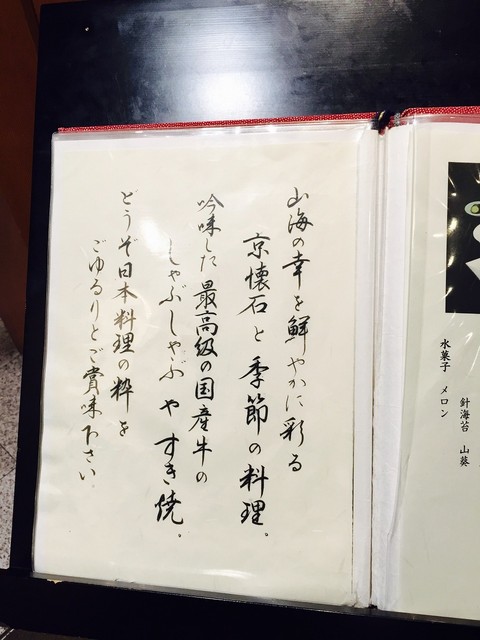 山海の幸を鮮やかに彩る
京懐石と季節の料理。
吟味した最高級の国産牛の
しゃぶしゃぶやすき焼。
どうぞ日本料理の粋を
ごゆるりとご賞味下さい
針海苔 山葵
水菓子 メロン